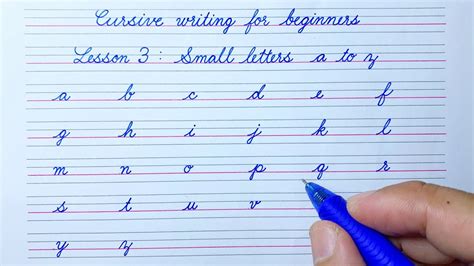 Cursive writing for beginners
Lesson 3 : Small letters a to z
a b c d e f
g h i j k l
m n o p q r
s t u v
y z